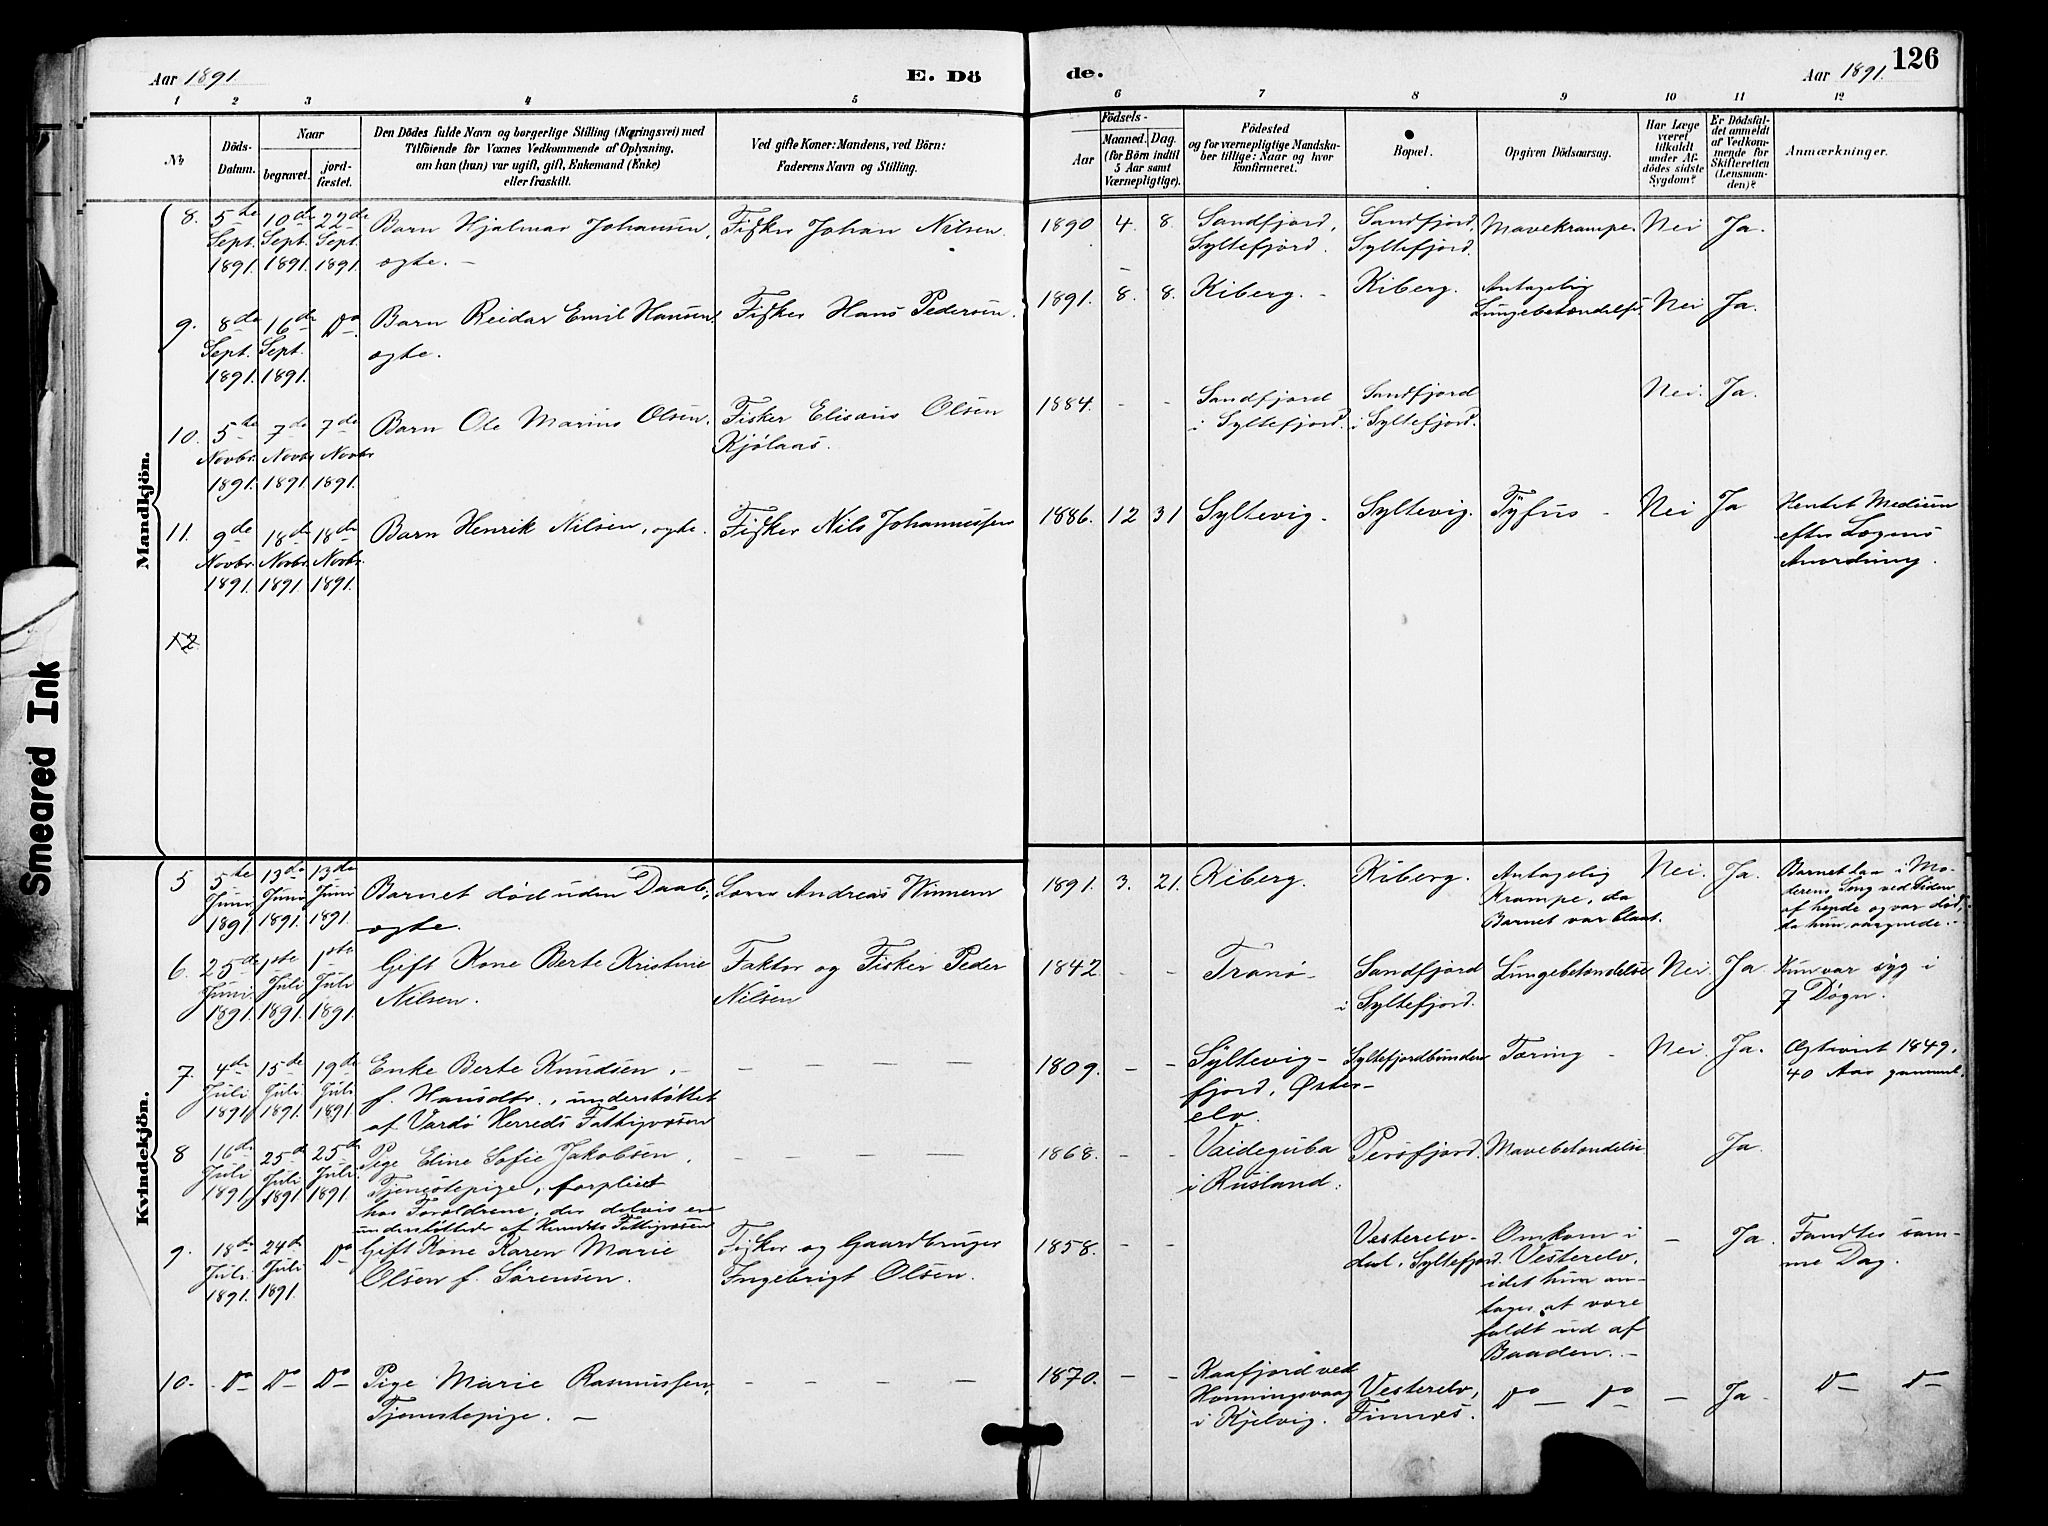 Aar 1891.
E. Dö
de.
Aar 1891.
126
1 2 3 4 5 6 7 8 9 10 11 12
No
Döds-
Datum.
Naar
begravet.
jord-
fæstet.
Den Dödes fulde Navn og borgerlige Stilling (Næringsvei) med
Tilföiende for Voxnes Vedkommende af Oplysning,
om han (hun) var ugift, gift, Enkemand (Enke)
eller fraskilt.
Ved gifte Koner: Mandens, ved Börn:
Faderens Navn og Stilling.
Födsels-
Aar
Maaned.
Dag.
(for Börn indtil
5 Aar samt
Værnepligtige).
Födested
og for værnepligtige Mandska-
ber tillige: Naar og hvor
konfirmeret.
Bopæl.
Opgiven Dödsaarsag.
Har Læge
været
tilkaldt
under Af-
dödes sidste
Sygdom?
Er Dödsfal-
det anmeldt
af Vedkom-
mende for
Skifteretten
(Lensman-
den)?
Anmærkninger.
Mandkjön.
8. 5te Sept. 1891. 10de Sept. 1891. 22de Sept. 1891.
Barn Hjalmar Johansen,
ægte. –
Fisker Johan Nilsen.
1890 4. 8.
Sandfjord,
Syltefjord.
Sandfjord,
Syltefjord.
Mavekrampe. Nei Ja.
9. 8de Sept. 1891. 16de Sept. 1891. Do
Barn Reidar Emil Hansen,
ægte.
Fisker Hans Pedersen.
1891. 8. 8. Kiberg. – Kiberg.
Antagelig
Lungebetændelse
Nei Ja.
10. 5te Novbr. 1891. 7de Novbr 1891. 7de Novbr 1891.
Barn Ole Marius Olsen.
Fisker Elisæus Olsen
Kjølaas.
1884. – –
Sandfjord
i Syltefjord.
Sandfjord
i Syltefjord.
Nei. Ja.
11. 9de Novbr. 1891. 18de Novbr. 1891. 18de Novbr. 1891.
Barn Henrik Nilsen, ægte.
Fisker Nils Johannessen
1886. 12 31 Syltevig. Syltevig. Tyfus – Nei Ja
Hentet Medicin
efter Lægens
Anordning.
12
Kvindekjön.
5 5te Juni 1891 13de Juni 1891. 13de Juni 1891.
Barnet død uden Daab,
ægte.
Lars Andreas Winnem
1891. 3. 21. Kiberg. Kiberg.
Antagelig
Krampe, da
Barnet var blaat.
Nei. Ja.
Barnet laa i Mo-
derens Seng ved Siden
af hende og var død,
da hun vaagnede. –
6. 25de Juni 1891. 1ste Juli 1891. 1ste Juli 1891.
Gift Kone Berte Kristine
Nilsen.
Faktor og Fisker Peder
Nilsen
1842 – – Tranø –
Sandfjord
i Syltefjord.
Lungebetændelse Nei. Ja
Hun var syg i
7 Døgn.
7. 4de Juli 1891 15de Juli 1891. 19de Juli 1891.
Enke Berte Knudsen, –
f. Hansdtr., understøttet
af Vardø Herreds Fattigvæsen
– – – –
1809. – –
Syltevig-
fjord, Øster-
elv.
Syltefjordbunden Tæring – Nei. Ja.
Ægteviet 1849,
40 Aar gammel.
8 16de Juli 1891 25de Juli 1891 25de Juli 1891.
Pige Eline Sofie Jakobsen,
Tjenestepige, forpleiet
hos Forældrene, der delvis ere
understøttede af Herredets Fattigvæsen
– – – –
1868. – –
Vaideguba
i Rusland.
Persfjord. Mavebetændelse Ja.
9. 18de Juli 1891. 24de Juli 1891. Do
Gift Kone Karen Marie
Olsen f. Sørensen.
Fisker og Gaardbruger
Ingebrigt Olsen.
1858. – –
Vesterelv-
dal, Syltefjord.
Omkom i
Vesterelv,
idet hun an-
tages at være
faldt ud af
Baaden. –
– Ja.
Fandtes sam-
me Dag.
10. Do Do Do
Pige Marie Rasmussen,
Tjenestepige. –
– – – –
1870. – –
Kaafjord ved
Honningsvaag
i Kjelvig.
Vesterelv,
Finnes.
Do – Do – Ja – Do Do
Smeared Ink